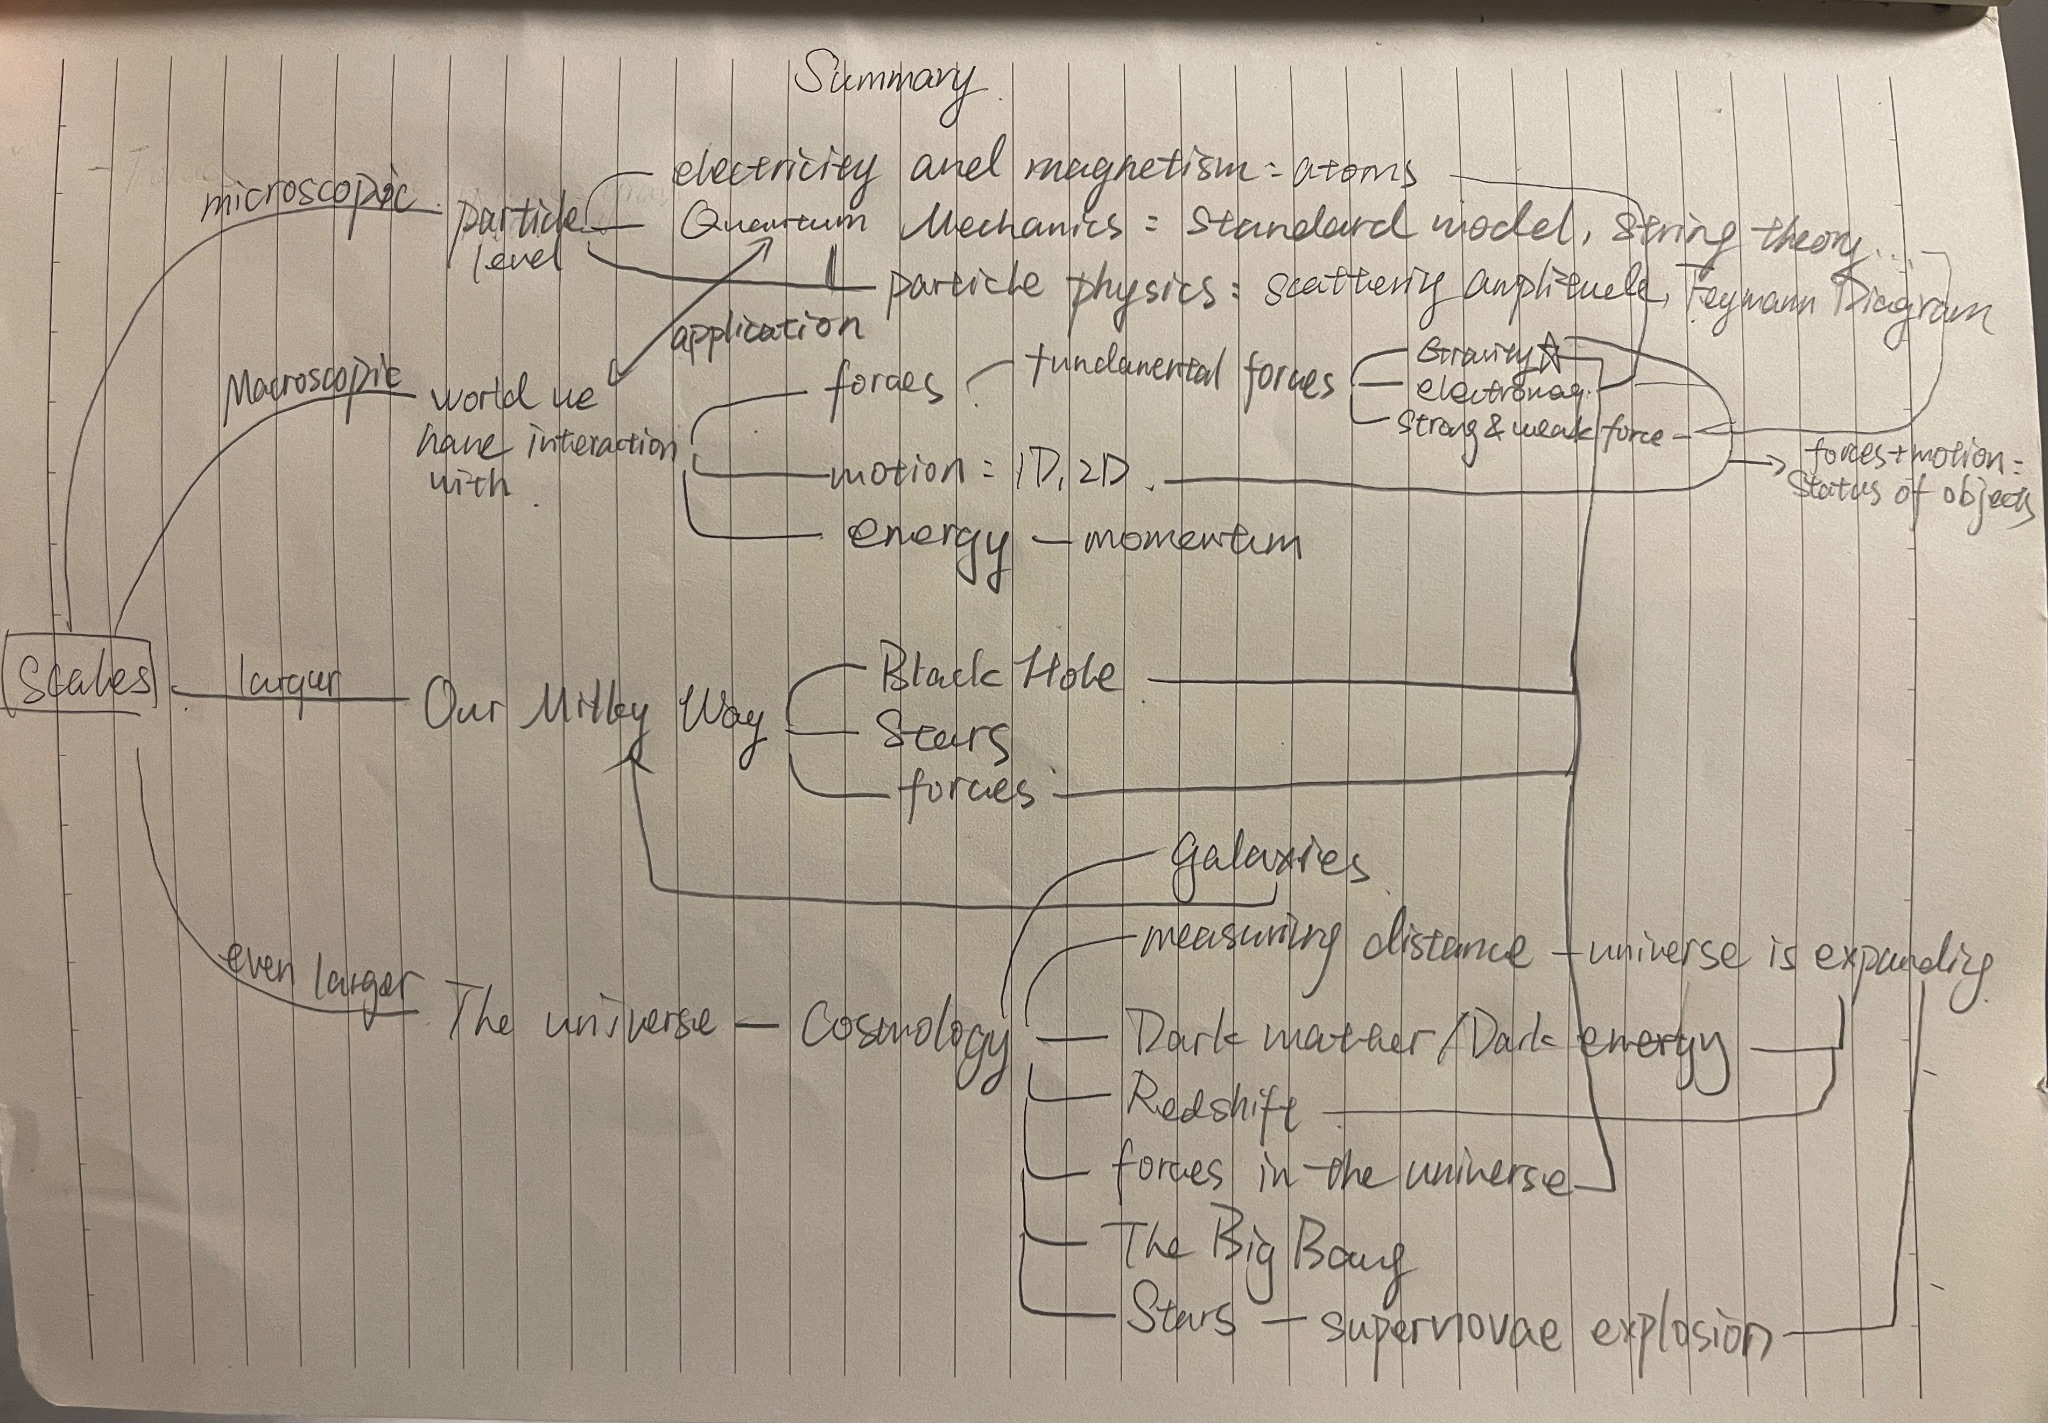 Summary
microscopic
particle
level
electricity and magnetism = atoms
Quantum Mechanics = standard model, string theory...
particle physics = scattering amplitude, Feymann Diagram
application
Macroscopic
world we
have interaction
with
forces
fundamental forces
Gravity ☆
electromag.
Strong & weak force
motion = 1D, 2D
forces + motion =
Status of objects
energy — momentum
Scales
larger
Our Milky Way
Black Hole
Stars
forces
even larger
The universe — Cosmology
galaxies
measuring distance — universe is expanding
Dark matter / Dark energy
Redshift
forces in the universe
The Big Bang
Stars — supernovae explosion